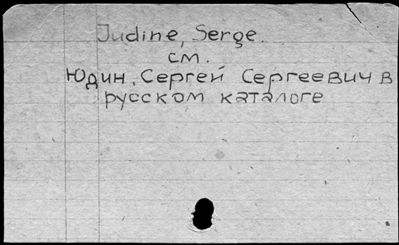 Judine, Serge.
см.
Юдин, Сергей Сергеевич в
русском каталоге